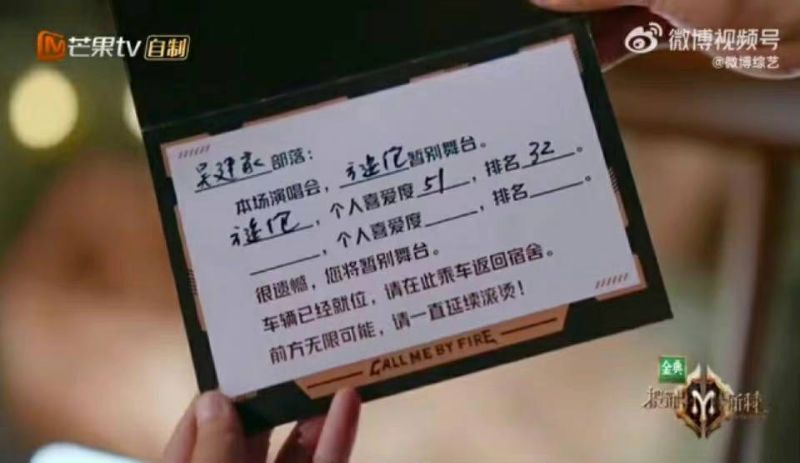 芒果tv 自制
微博视频号
@微博综艺
吴建豪 部落：
本场演唱会，方逸伦 暂别舞台。
方逸伦，个人喜爱度 51，排名 32。
，个人喜爱度 ，排名 。
很遗憾，您将暂别舞台。
车辆已经就位，请在此乘车返回宿舍。
前方无限可能，请一直延续滚烫！
CALL ME BY FIRE
金典
披荆斩棘